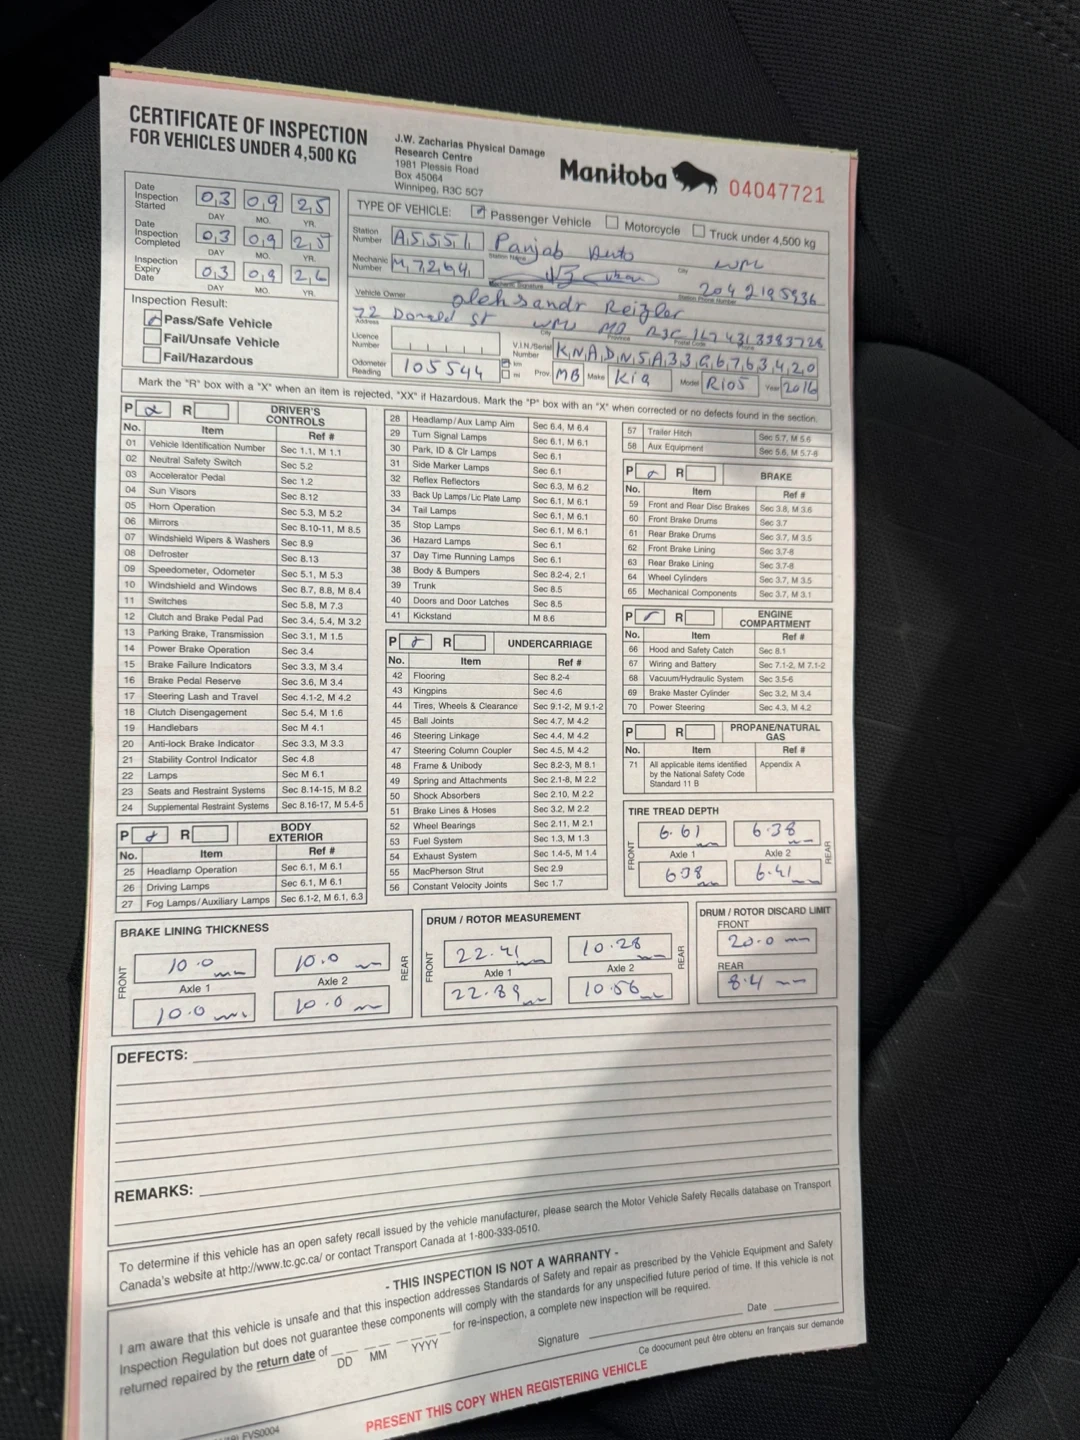 CERTIFICATE OF INSPECTION
FOR VEHICLES UNDER 4,500 KG
J.W. Zacharias Physical Damage
Research Centre
1981 Plessis Road
Box 45064
Winnipeg, R3C 5C7
Manitoba
04047721
Date Inspection Started 03 09 25
DAY MO. YR.
Date Inspection Completed 03 09 25
DAY MO. YR.
Inspection Expiry Date 03 09 26
DAY MO. YR.
TYPE OF VEHICLE: Passenger Vehicle Motorcycle Truck under 4,500 kg
Station Number A5551 Panjab Auto WPG
Station Name City
Mechanic Number M7264 204 2195936
Mechanic Signature Station Phone Number
Vehicle Owner oleksandr Reizler
72 Donald st WPG MB R3C 1L7 431 3383728
Address City Province Postal Code Phone
Licence Number
V.I.N./Serial Number KNADN5A33G6763420
Odometer Reading 105544 km mi Prov. MB Make Kia Model RIO5 Year 2016
Inspection Result:
Pass/Safe Vehicle
Fail/Unsafe Vehicle
Fail/Hazardous
Mark the "R" box with a "X" when an item is rejected, "XX" if Hazardous. Mark the "P" box with an "X" when corrected or no defects found in the section.
P R DRIVER'S CONTROLS
No. Item Ref #
01 Vehicle Identification Number Sec 1.1, M 1.1
02 Neutral Safety Switch Sec 5.2
03 Accelerator Pedal Sec 1.2
04 Sun Visors Sec 8.12
05 Horn Operation Sec 5.3, M 5.2
06 Mirrors Sec 8.10-11, M 8.5
07 Windshield Wipers & Washers Sec 8.9
08 Defroster Sec 8.13
09 Speedometer, Odometer Sec 5.1, M 5.3
10 Windshield and Windows Sec 8.7, 8.8, M 8.4
11 Switches Sec 5.8, M 7.3
12 Clutch and Brake Pedal Pad Sec 3.4, 5.4, M 3.2
13 Parking Brake, Transmission Sec 3.1, M 1.5
14 Power Brake Operation Sec 3.4
15 Brake Failure Indicators Sec 3.3, M 3.4
16 Brake Pedal Reserve Sec 3.6, M 3.4
17 Steering Lash and Travel Sec 4.1-2, M 4.2
18 Clutch Disengagement Sec 5.4, M 1.6
19 Handlebars Sec M 4.1
20 Anti-lock Brake Indicator Sec 3.3, M 3.3
21 Stability Control Indicator Sec 4.8
22 Lamps Sec M 6.1
23 Seats and Restraint Systems Sec 8.14-15, M 8.2
24 Supplemental Restraint Systems Sec 8.16-17, M 5.4-5
P R BODY EXTERIOR
No. Item Ref #
25 Headlamp Operation Sec 6.1, M 6.1
26 Driving Lamps Sec 6.1, M 6.1
27 Fog Lamps/Auxiliary Lamps Sec 6.1-2, M 6.1, 6.3
28 Headlamp/Aux Lamp Aim Sec 6.4, M 6.4
29 Turn Signal Lamps Sec 6.1, M 6.1
30 Park, ID & Clr Lamps Sec 6.1
31 Side Marker Lamps Sec 6.1
32 Reflex Reflectors Sec 6.3, M 6.2
33 Back Up Lamps/Lic Plate Lamp Sec 6.1, M 6.1
34 Tail Lamps Sec 6.1, M 6.1
35 Stop Lamps Sec 6.1, M 6.1
36 Hazard Lamps Sec 6.1
37 Day Time Running Lamps Sec 6.1
38 Body & Bumpers Sec 8.2-4, 2.1
39 Trunk Sec 8.5
40 Doors and Door Latches Sec 8.5
41 Kickstand M 8.6
P R UNDERCARRIAGE
No. Item Ref #
42 Flooring Sec 8.2-4
43 Kingpins Sec 4.6
44 Tires, Wheels & Clearance Sec 9.1-2, M 9.1-2
45 Ball Joints Sec 4.7, M 4.2
46 Steering Linkage Sec 4.4, M 4.2
47 Steering Column Coupler Sec 4.5, M 4.2
48 Frame & Unibody Sec 8.2-3, M 8.1
49 Spring and Attachments Sec 2.1-8, M 2.2
50 Shock Absorbers Sec 2.10, M 2.2
51 Brake Lines & Hoses Sec 3.2, M 2.2
52 Wheel Bearings Sec 2.11, M 2.1
53 Fuel System Sec 1.3, M 1.3
54 Exhaust System Sec 1.4-5, M 1.4
55 MacPherson Strut Sec 2.9
56 Constant Velocity Joints Sec 1.7
57 Trailer Hitch Sec 5.7, M 5.6
58 Aux Equipment Sec 5.6, M 5.7-8
P R BRAKE
No. Item Ref #
59 Front and Rear Disc Brakes Sec 3.8, M 3.6
60 Front Brake Drums Sec 3.7
61 Rear Brake Drums Sec 3.7, M 3.5
62 Front Brake Lining Sec 3.7-8
63 Rear Brake Lining Sec 3.7-8
64 Wheel Cylinders Sec 3.7, M 3.5
65 Mechanical Components Sec 3.7, M 3.1
P R ENGINE COMPARTMENT
No. Item Ref #
66 Hood and Safety Catch Sec 8.1
67 Wiring and Battery Sec 7.1-2, M 7.1-2
68 Vacuum/Hydraulic System Sec 3.5-6
69 Brake Master Cylinder Sec 3.2, M 3.4
70 Power Steering Sec 4.3, M 4.2
P R PROPANE/NATURAL GAS
No. Item Ref #
71 All applicable items identified by the National Safety Code Standard 11 B Appendix A
TIRE TREAD DEPTH
FRONT 6.61 mm 6.38 mm REAR
Axle 1 Axle 2
638 mm 6.41 mm
BRAKE LINING THICKNESS
FRONT 10.0 mm 10.0 mm REAR
Axle 1 Axle 2
10.0 mm 10.0 mm
DRUM / ROTOR MEASUREMENT
FRONT 22.41 mm 10.28 mm REAR
Axle 1 Axle 2
22.89 mm 10.56 mm
DRUM / ROTOR DISCARD LIMIT
FRONT
20.0 mm
REAR
8.4 mm
DEFECTS:
REMARKS:
To determine if this vehicle has an open safety recall issued by the vehicle manufacturer, please search the Motor Vehicle Safety Recalls database on Transport
Canada's website at http://www.tc.gc.ca/ or contact Transport Canada at 1-800-333-0510.
- THIS INSPECTION IS NOT A WARRANTY -
I am aware that this vehicle is unsafe and that this inspection addresses Standards of Safety and repair as prescribed by the Vehicle Equipment and Safety
Inspection Regulation but does not guarantee these components will comply with the standards for any unspecified future period of time. If this vehicle is not
returned repaired by the return date of for re-inspection, a complete new inspection will be required.
DD MM YYYY
Signature Date
Ce doocument peut être obtenu en français sur demande
PRESENT THIS COPY WHEN REGISTERING VEHICLE
FVS0004